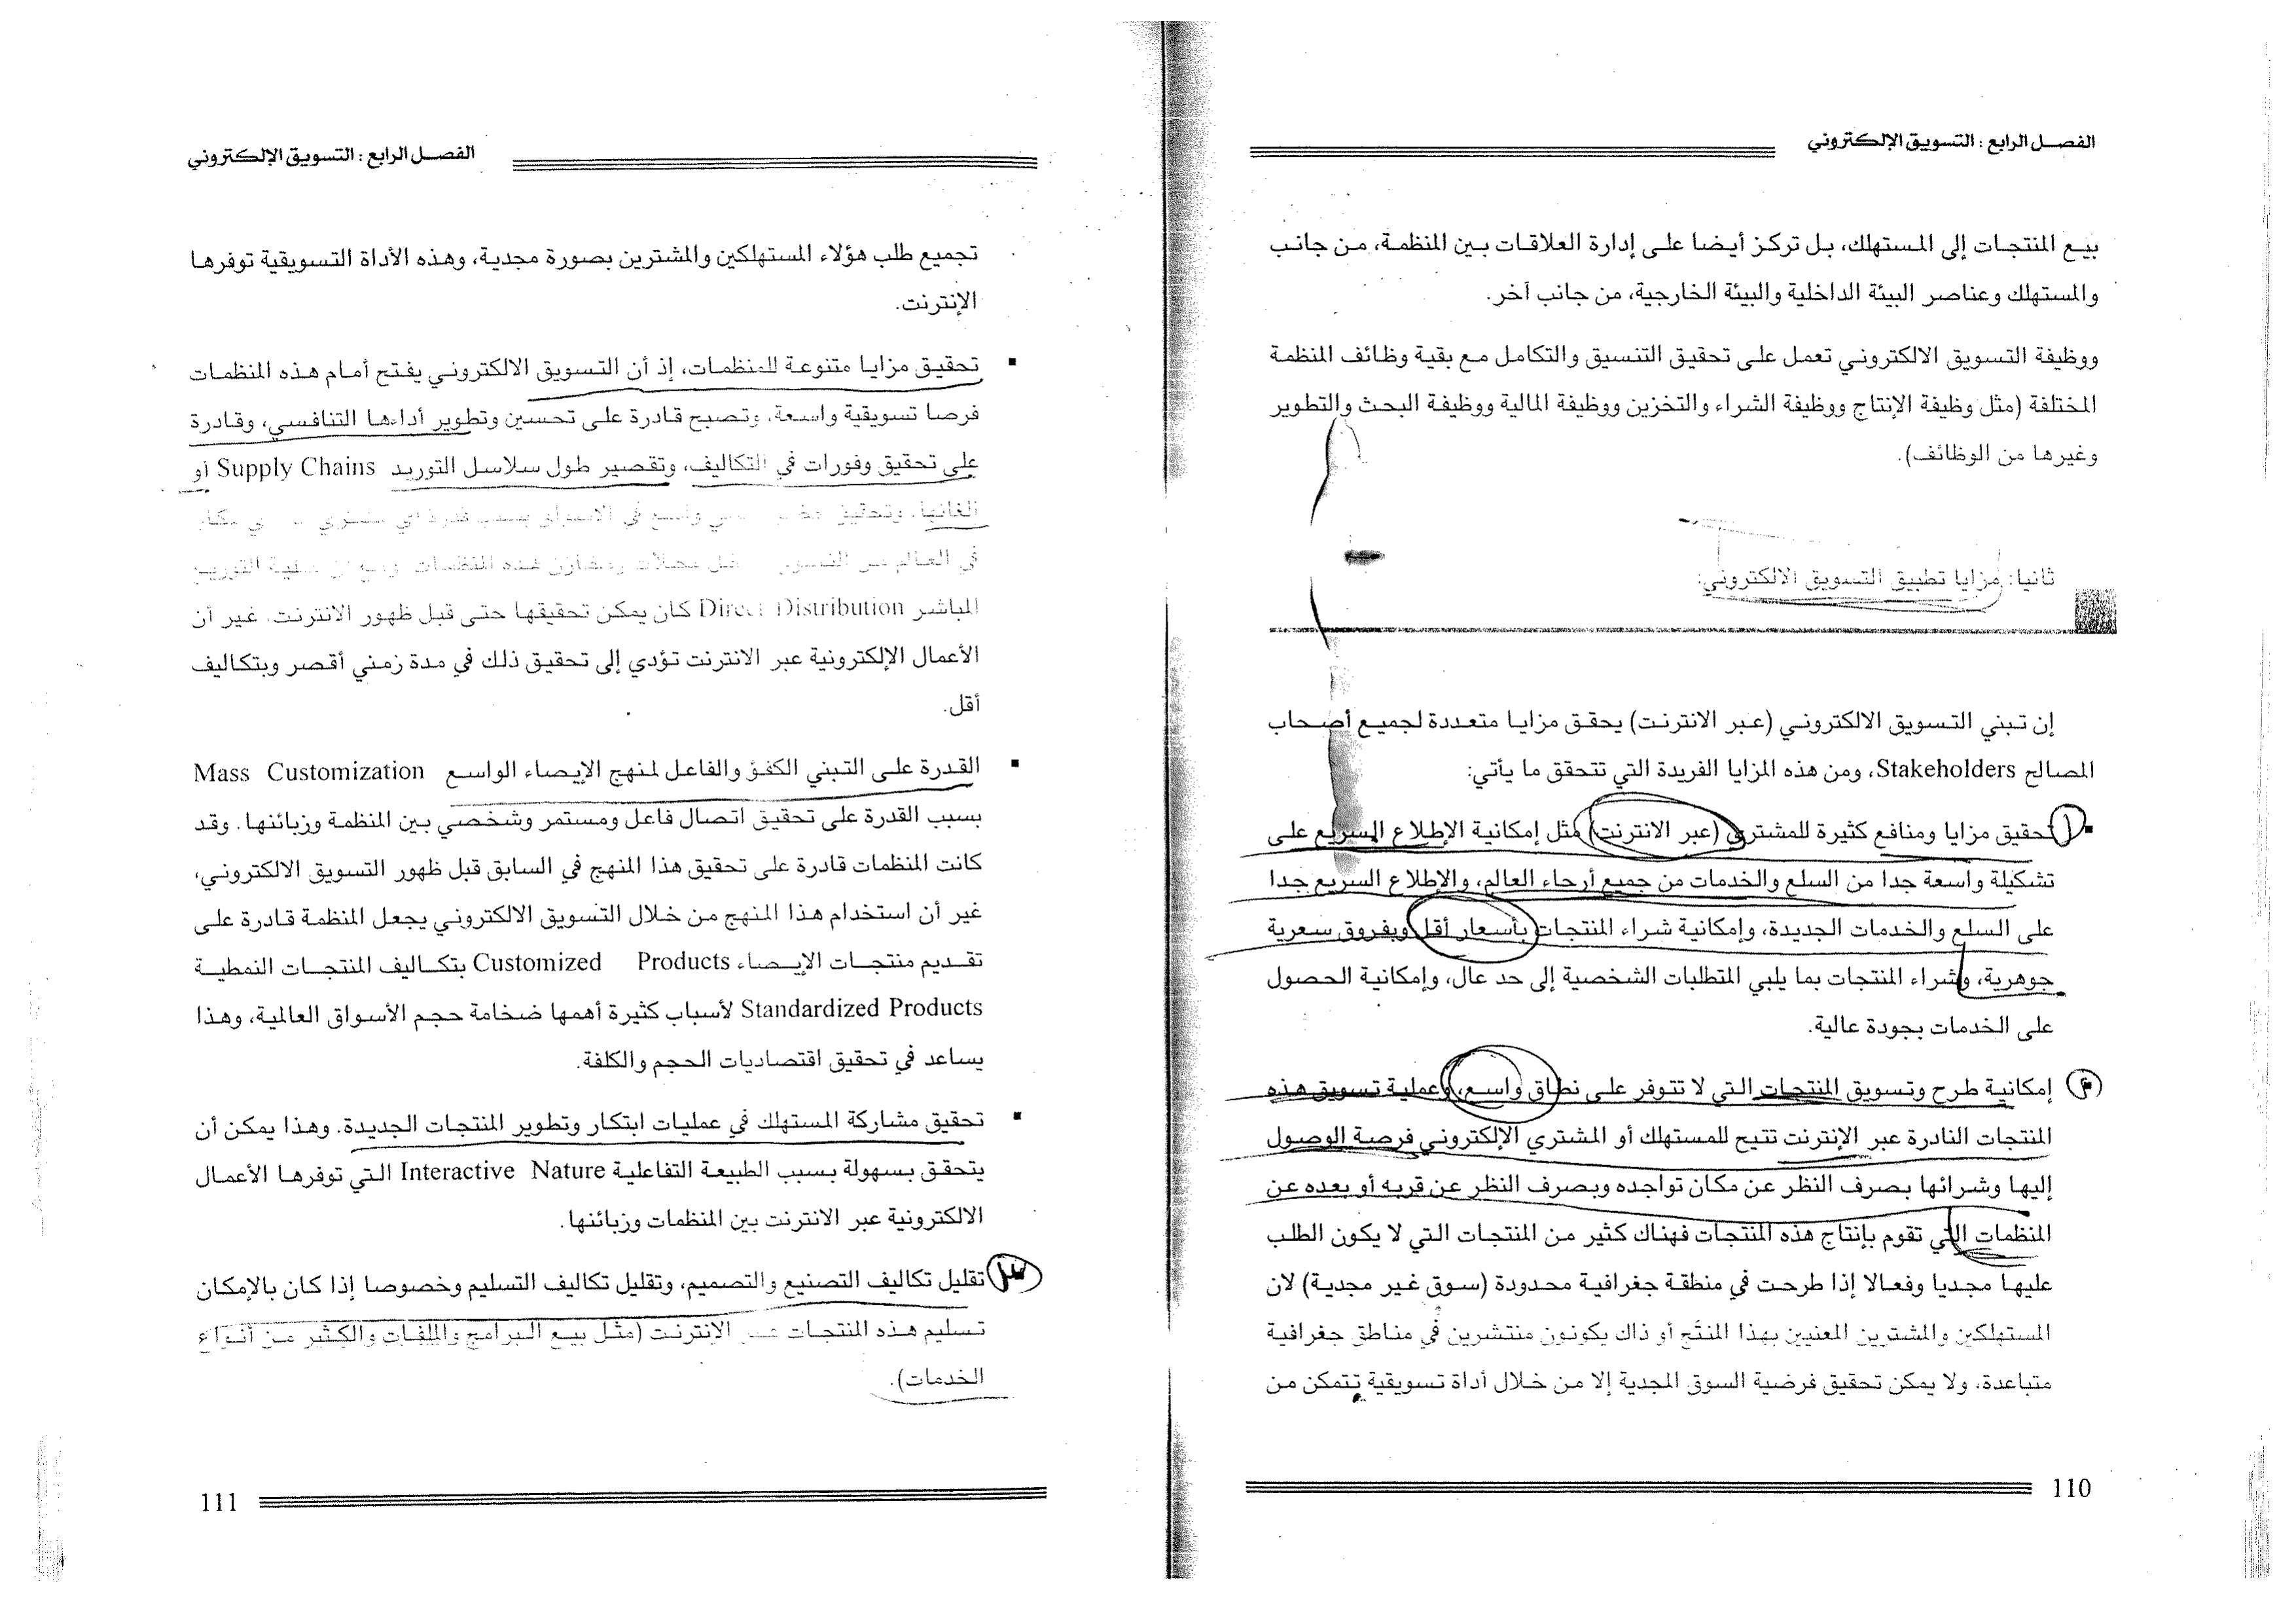 الفصل الرابع : التسويق الإلكتروني
بيع المنتجات إلى المستهلك، بل تركز أيضا على إدارة العلاقات بين المنظمة، من جانب
والمستهلك وعناصر البيئة الداخلية والبيئة الخارجية، من جانب آخر.
ووظيفة التسويق الالكتروني تعمل على تحقيق التنسيق والتكامل مع بقية وظائف المنظمة
المختلفة (مثل وظيفة الإنتاج ووظيفة الشراء والتخزين ووظيفة المالية ووظيفة البحث والتطوير
وغيرها من الوظائف).
ثانيا: مزايا تطبيق التسويق الالكتروني:
إن تبني التسويق الالكتروني (عبر الانترنت) يحقق مزايا متعددة لجميع أصحاب
المصالح Stakeholders، ومن هذه المزايا الفريدة التي تتحقق ما يأتي:
▪ تحقيق مزايا ومنافع كثيرة للمشتري (عبر الانترنت) مثل إمكانية الإطلاع السريع على
تشكيلة واسعة جدا من السلع والخدمات من جميع أرجاء العالم، والإطلاع السريع جدا
على السلع والخدمات الجديدة، وإمكانية شراء المنتجات بأسعار أقل وبفروق سعرية
جوهرية، وشراء المنتجات بما يلبي المتطلبات الشخصية إلى حد عال، وإمكانية الحصول
على الخدمات بجودة عالية.
إمكانية طرح وتسويق المنتجات التي لا تتوفر على نطاق واسع، وعملية تسويق هذه
المنتجات النادرة عبر الإنترنت تتيح للمستهلك أو المشتري الإلكتروني فرصة الوصول
إليها وشرائها بصرف النظر عن مكان تواجده وبصرف النظر عن قربه أو بعده عن
المنظمات التي تقوم بإنتاج هذه المنتجات فهناك كثير من المنتجات التي لا يكون الطلب
عليها مجديا وفعالا إذا طرحت في منطقة جغرافية محدودة (سوق غير مجدية) لان
المستهلكين والمشترين المعنيين بهذا المنتج أو ذاك يكونون منتشرين في مناطق جغرافية
متباعدة، ولا يمكن تحقيق فرضية السوق المجدية إلا من خلال أداة تسويقية تتمكن من
110
الفصل الرابع : التسويق الإلكتروني
تجميع طلب هؤلاء المستهلكين والمشترين بصورة مجدية، وهذه الأداة التسويقية توفرها
الإنترنت.
▪ تحقيق مزايا متنوعة للمنظمات، إذ أن التسويق الالكتروني يفتح أمام هذه المنظمات
فرصا تسويقية واسعة، وتصبح قادرة على تحسين وتطوير أداءها التنافسي، وقادرة
على تحقيق وفورات في التكاليف، وتقصير طول سلاسل التوريد Supply Chains أو
الغائها، وتحقيق واسع في الاسواق بسبب قدرة أي مشتري في مكان
في العالم من التسوق محلات ومخازن هذه المنظمات التوزيع
المباشر Direct Distribution كان يمكن تحقيقها حتى قبل ظهور الانترنت، غير أن
الأعمال الإلكترونية عبر الانترنت تؤدي إلى تحقيق ذلك في مدة زمني أقصر وبتكاليف
أقل.
▪ القدرة على التبني الكفؤ والفاعل لمنهج الإيصاء الواسع Mass Customization
بسبب القدرة على تحقيق اتصال فاعل ومستمر وشخصي بين المنظمة وزبائنها. وقد
كانت المنظمات قادرة على تحقيق هذا المنهج في السابق قبل ظهور التسويق الالكتروني،
غير أن استخدام هذا المنهج من خلال التسويق الالكتروني يجعل المنظمة قادرة على
تقديم منتجات الإيصاء Customized Products بتكاليف المنتجات النمطية
Standardized Products لأسباب كثيرة أهمها ضخامة حجم الأسواق العالمية، وهذا
يساعد في تحقيق اقتصاديات الحجم والكلفة.
▪ تحقيق مشاركة المستهلك في عمليات ابتكار وتطوير المنتجات الجديدة. وهذا يمكن أن
يتحقق بسهولة بسبب الطبيعة التفاعلية Interactive Nature التي توفرها الأعمال
الالكترونية عبر الانترنت بين المنظمات وزبائنها.
٣ تقليل تكاليف التصنيع والتصميم، وتقليل تكاليف التسليم وخصوصا إذا كان بالإمكان
تسليم هذه المنتجات عبر الإنترنت (مثل بيع البرامج والملفات والكثير من أنواع
الخدمات).
111